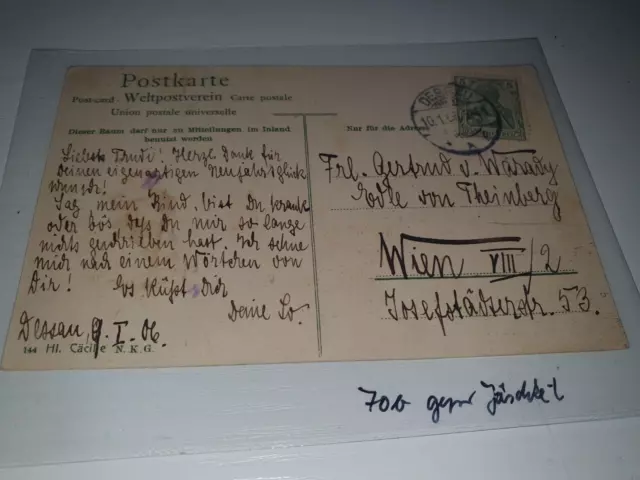 Postkarte
Postcard · Weltpostverein Carte postale
Union postale universelle
Dieser Raum darf nur zu Mitteilungen im Inland
benutzt werden
Nur für die Adresse
Liebste Trude! Herzl. Dank für
Deinen eigenartigen Neujahrsglück
wunsch!
Sag mein Kind, bist Du krank
oder bös dass Du mir so lange
nichts geschrieben hast. Ich sehne
mich nach einem Wörtchen von
Dir! Es küßt Dich
Deine Lo.
Dessau, 9. I. 06.
144 Hl. Cäcilie N.K.G.
Frl. Gertrud v. Wàrady
Edle von Theinberg
Wien VIII/2
Josefstädterstr. 53.
DES
10.1.0
5 5
70b